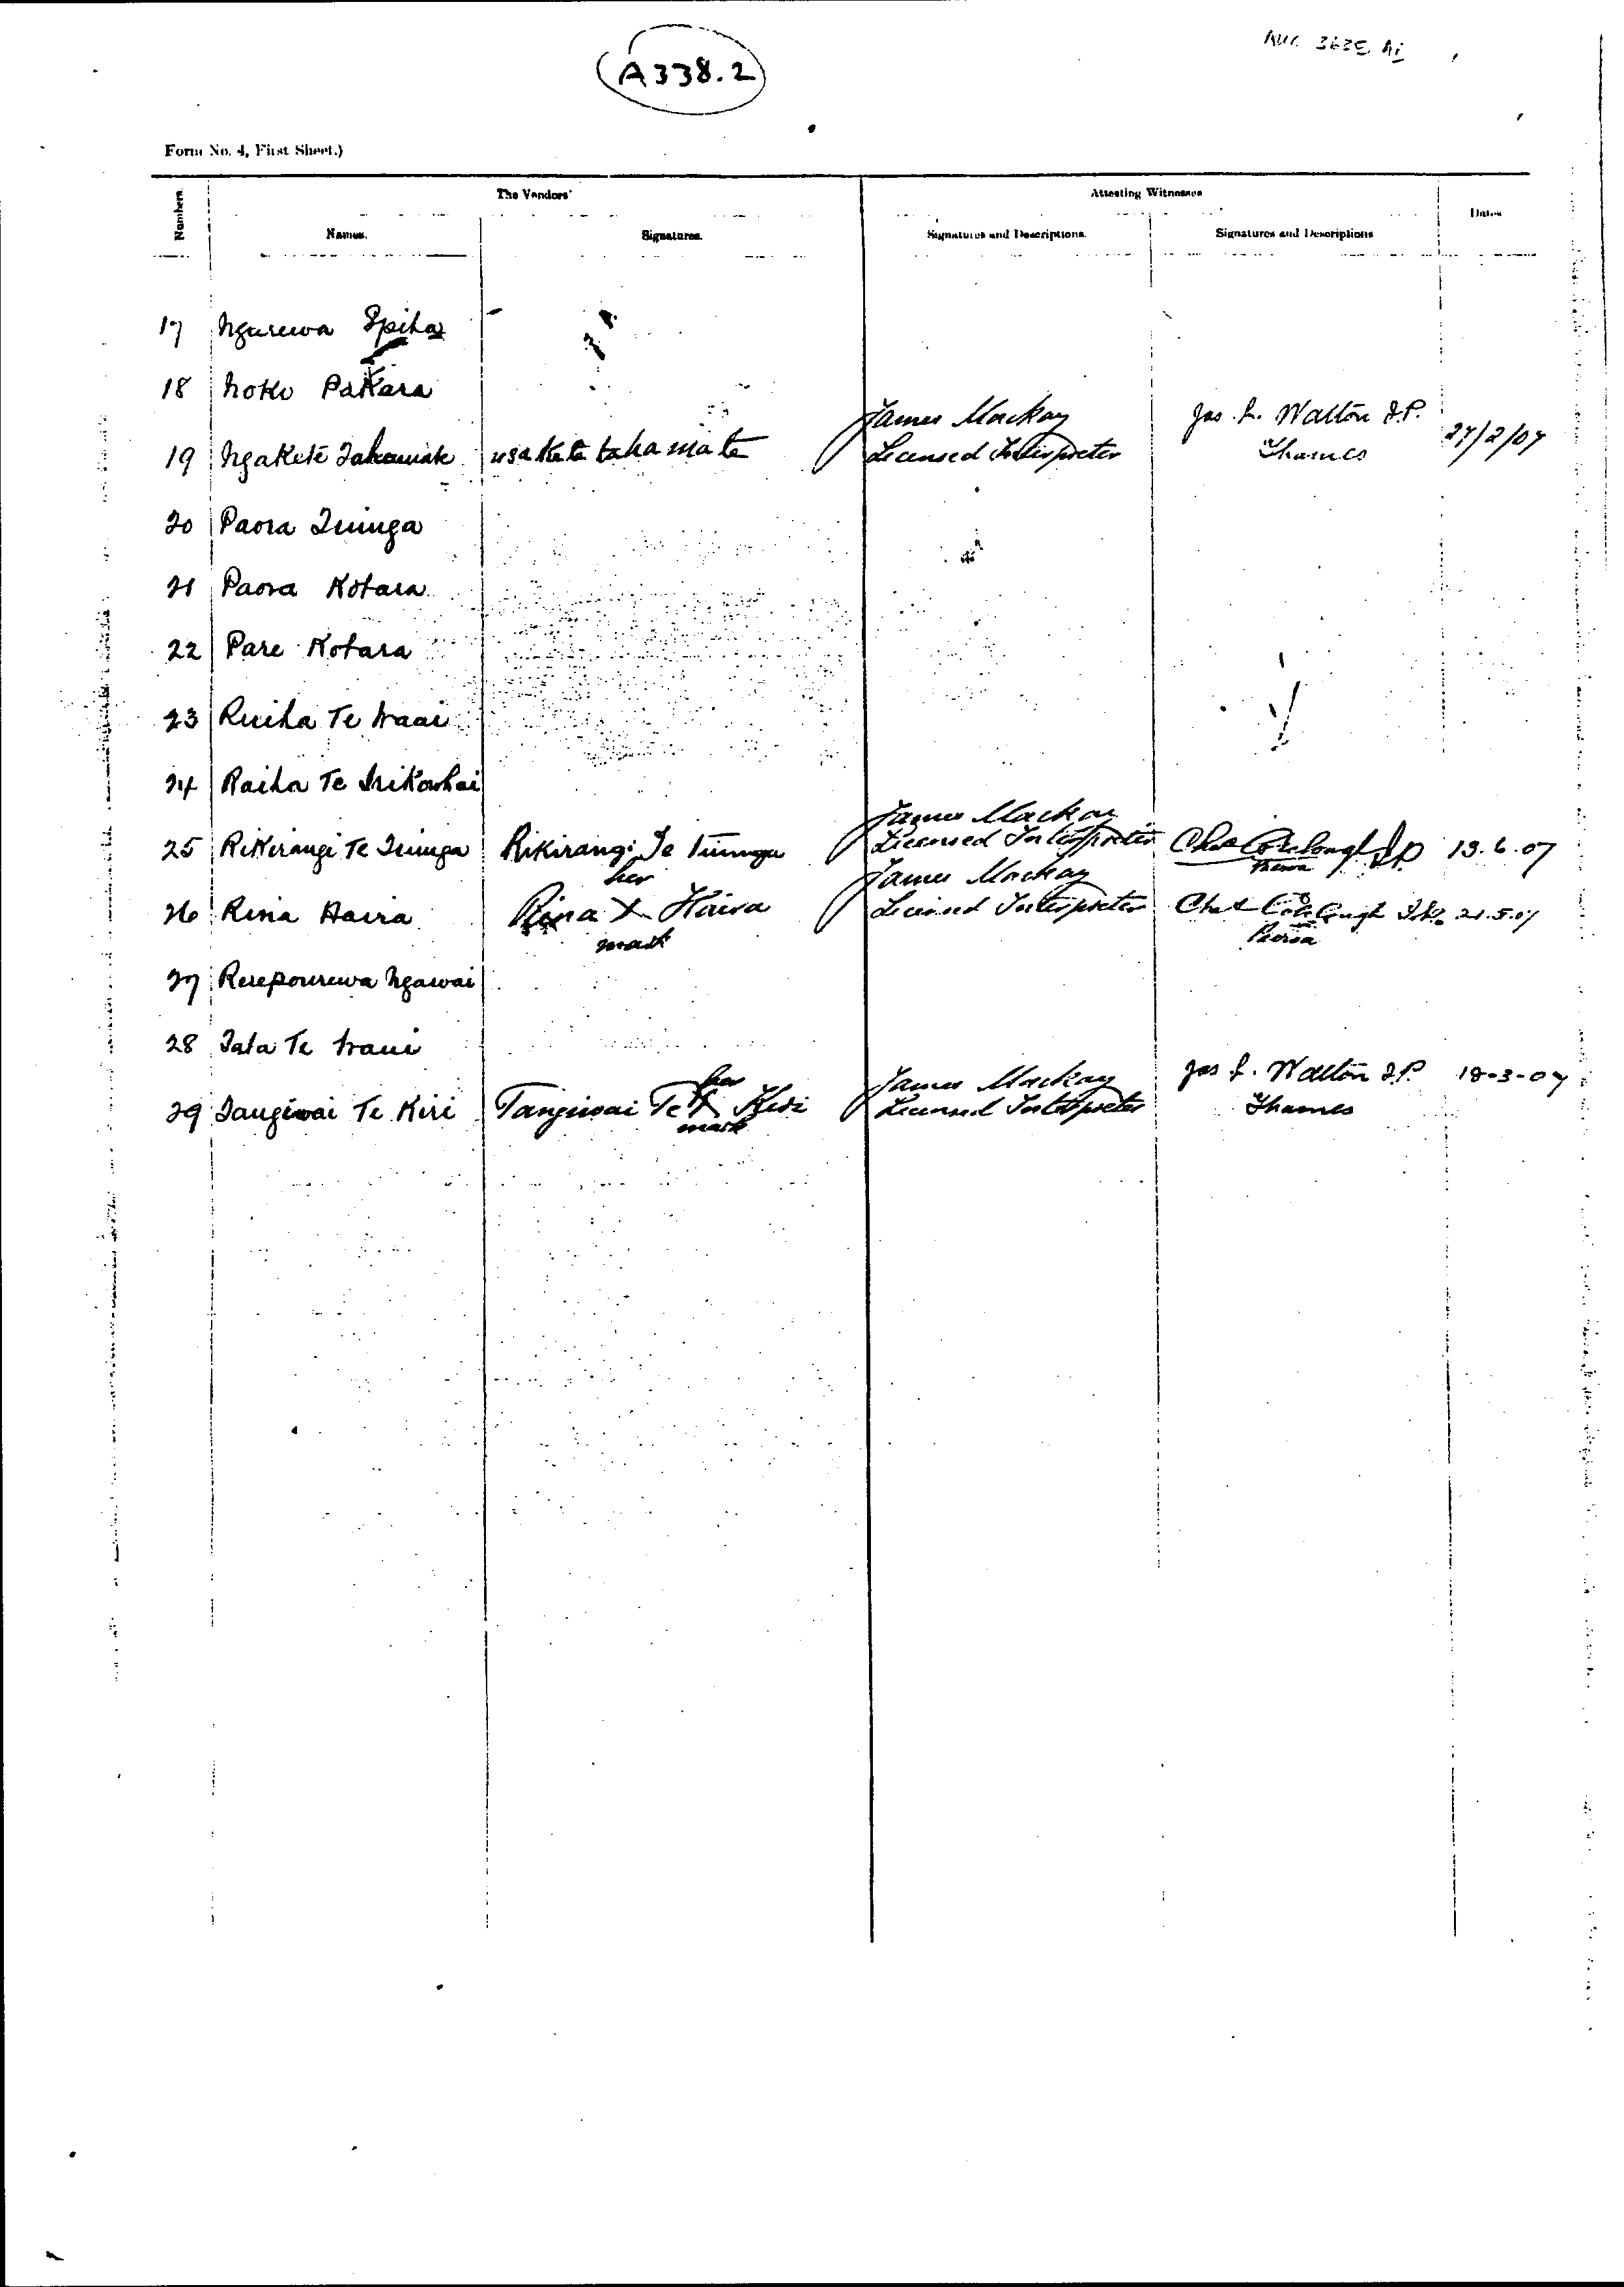 A338.2
Form No. 4, First Sheet.)
Numbers
The Vendors'
Attesting Witnesses
Dates
Names.
Signatures.
Signatures and Descriptions.
Signatures and Descriptions
17 Ngurewa
18 Pakara
19 Ngakete Takamate ngakete takamate James Mackay Jas. L. Walton J.P. 27/2/07
Licensed Interpreter Thames
20 Paora Tuinga
21 Paora Kotara
22 Pare Kotara
23 Ruiha Te
24 Raiha Te
25 Rikirangi Te Tuinga Rikirangi Te Tuinga James Mackay
Licensed Interpreter J.P. 13.6.07
Paeroa
26 Rina Haira Rina her X mark Haira James Mackay
Licensed Interpreter 21.5.07
Paeroa
27 Rerepourewa Ngawai
28 Tata Te
29 Tangiwai Te Kiri Tangiwai Te her X mark Kiri James Mackay Jas L. Walton J.P. 18-3-07
Licensed Interpreter Thames